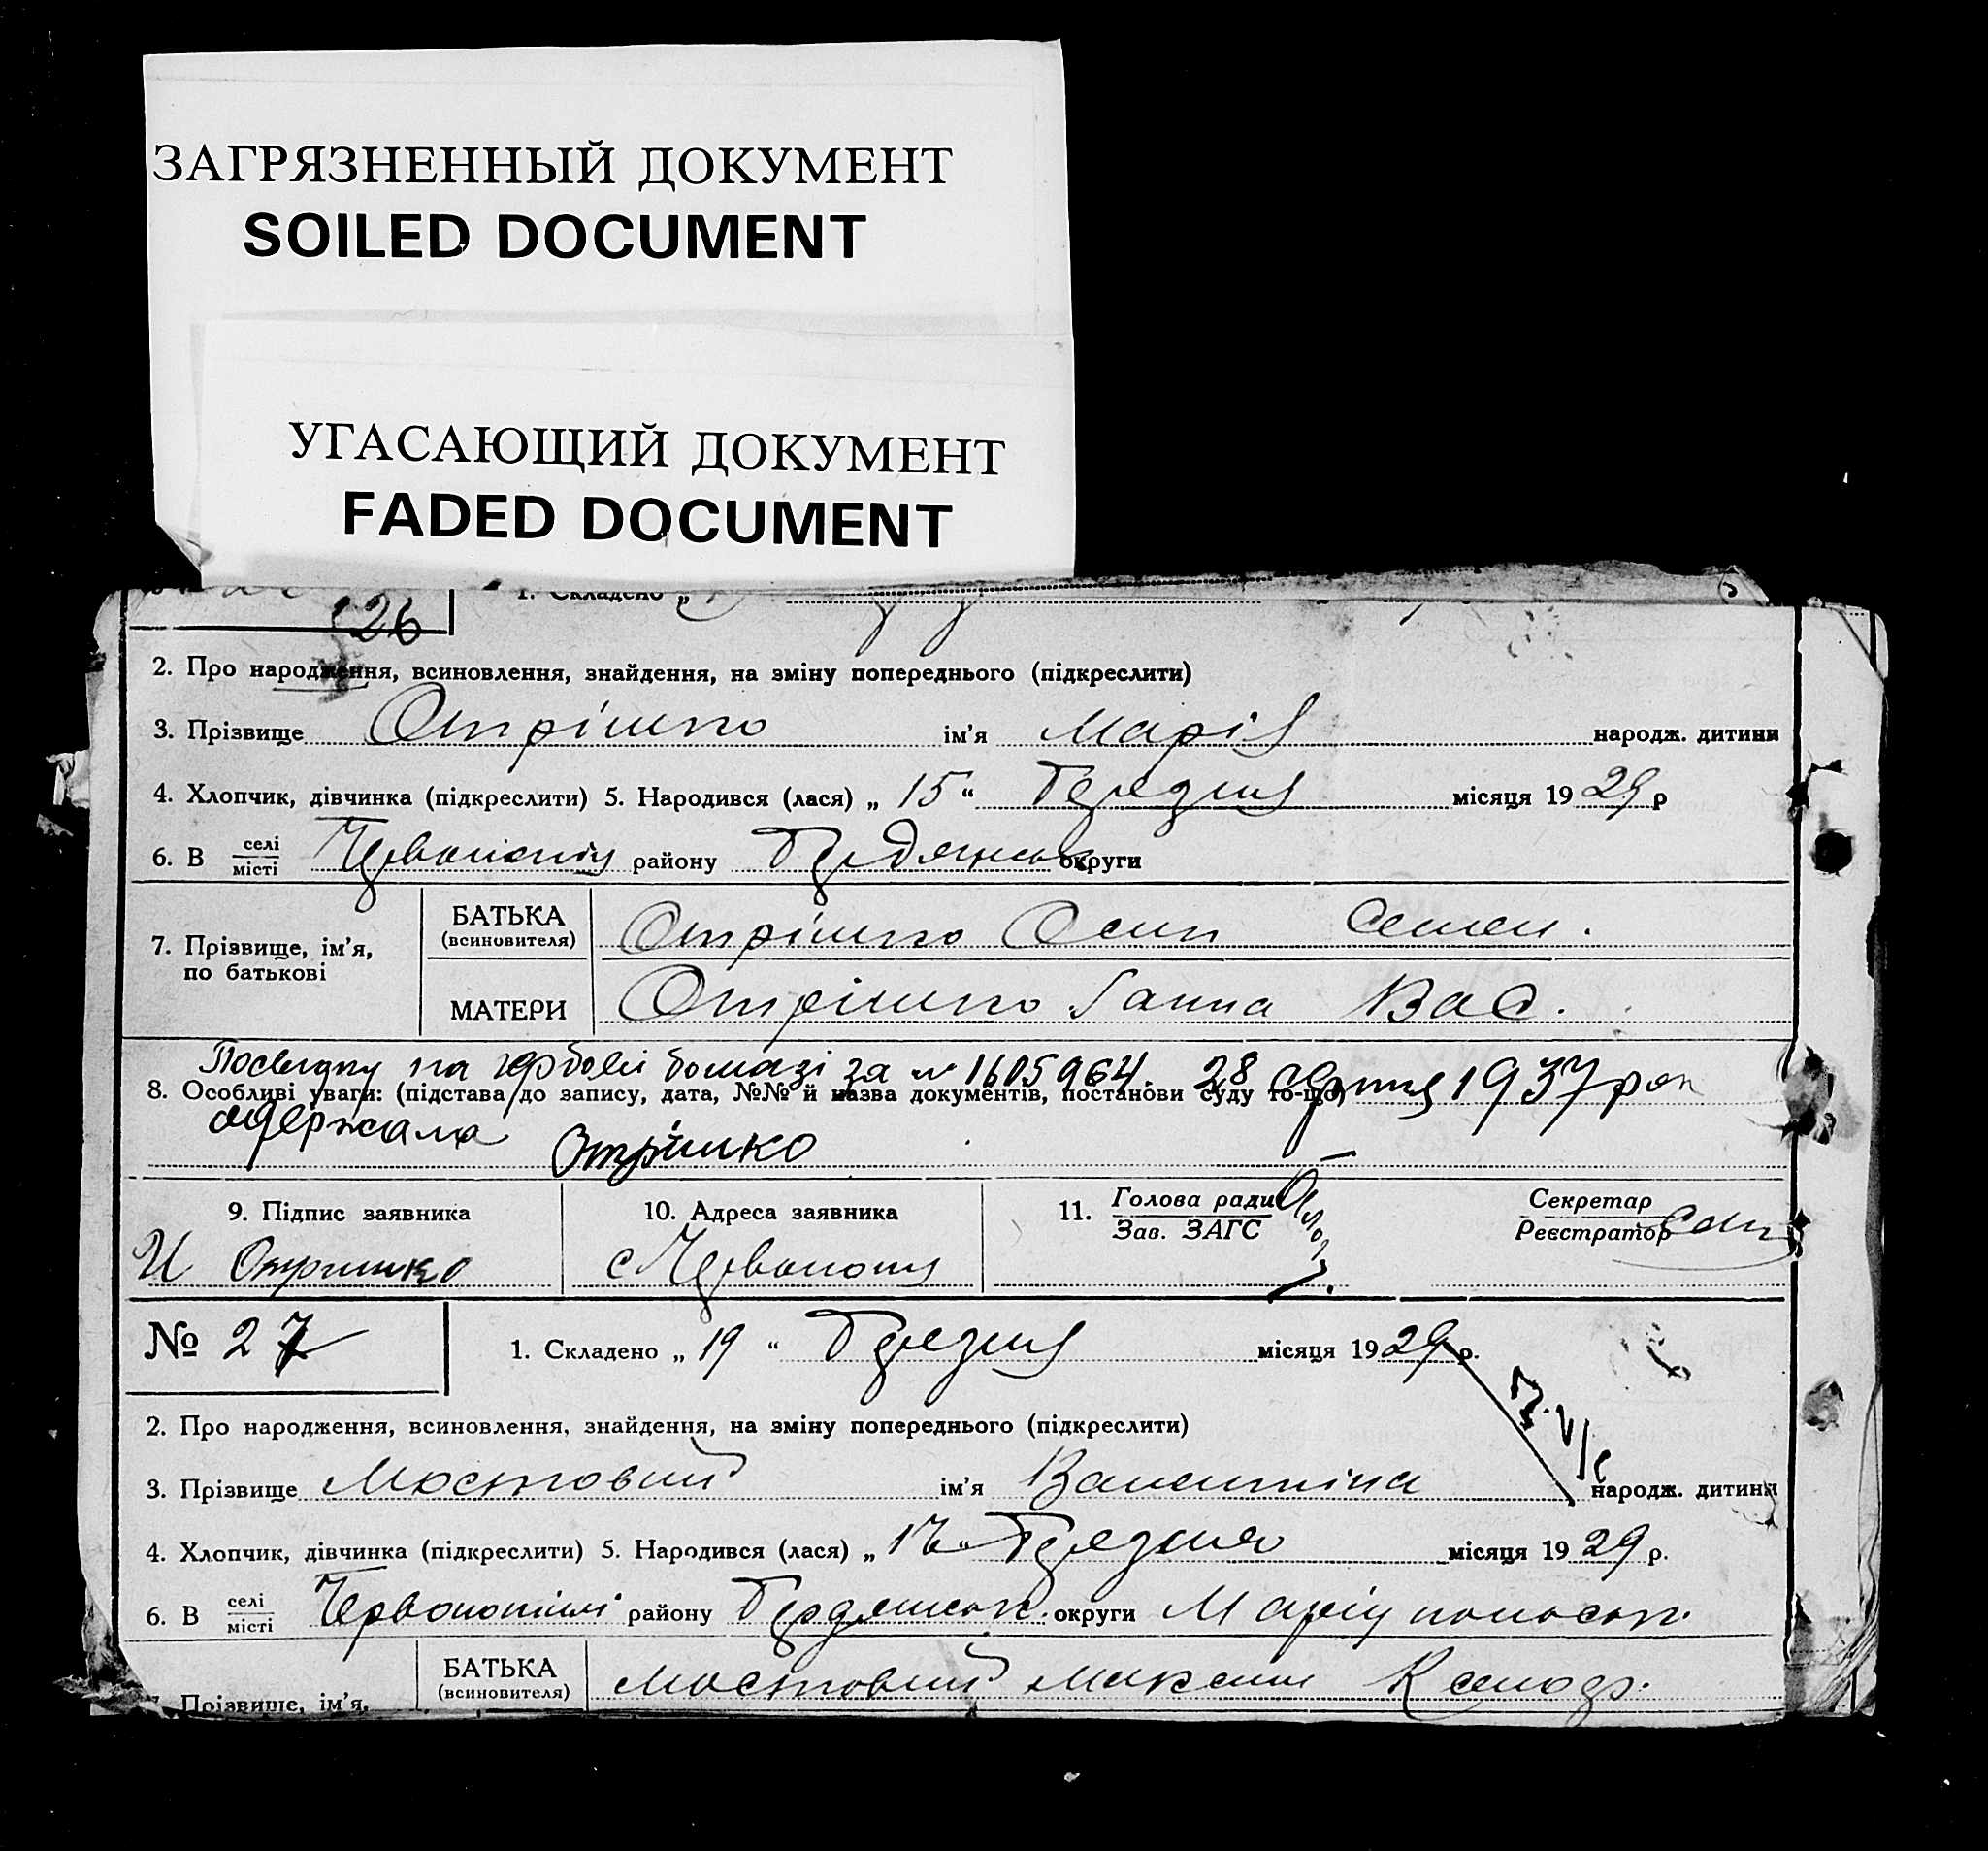 ЗАГРЯЗНЕННЫЙ ДОКУМЕНТ
SOILED DOCUMENT
УГАСАЮЩИЙ ДОКУМЕНТ
FADED DOCUMENT
1. Складено „
26
2. Про народження, всиновлення, знайдення, на зміну попереднього (підкреслити)
3. Прізвище Отрішко ім'я Марія народж. дитини
4. Хлопчик, дівчинка (підкреслити) 5. Народився (лася) „ 15 “ Березня місяця 19 29 р
6. В селі місті району Бердянськ округи
7. Прізвище, ім'я, по батькові
БАТЬКА (всиновителя) Отрішко Осип Семен.
МАТЕРИ Отрішко Ганна Вас.
на гербовій бомазі за № 1605964. 28 1937 рок
8. Особливі уваги: (підстава до запису, дата, №№ й назва документів, постанови суду то-що)
одержала Отрішко
9. Підпис заявника 10. Адреса заявника 11. Голова ради Зав. ЗАГС Секретар Реєстратор
И Отришко с
№ 27 1. Складено „ 19 “ Березня місяця 19 29 р.
2. Про народження, всиновлення, знайдення, на зміну попереднього (підкреслити)
3. Прізвище Мостовий ім'я Валентіна народж. дитини
4. Хлопчик, дівчинка (підкреслити) 5. Народився (лася) „ “ Березня місяця 19 29 р.
6. В селі місті Червонопілі району Бердянськ. округи Маріупольськ.
7. Прізвище, ім'я,
БАТЬКА (всиновителя) Мостовий Максим